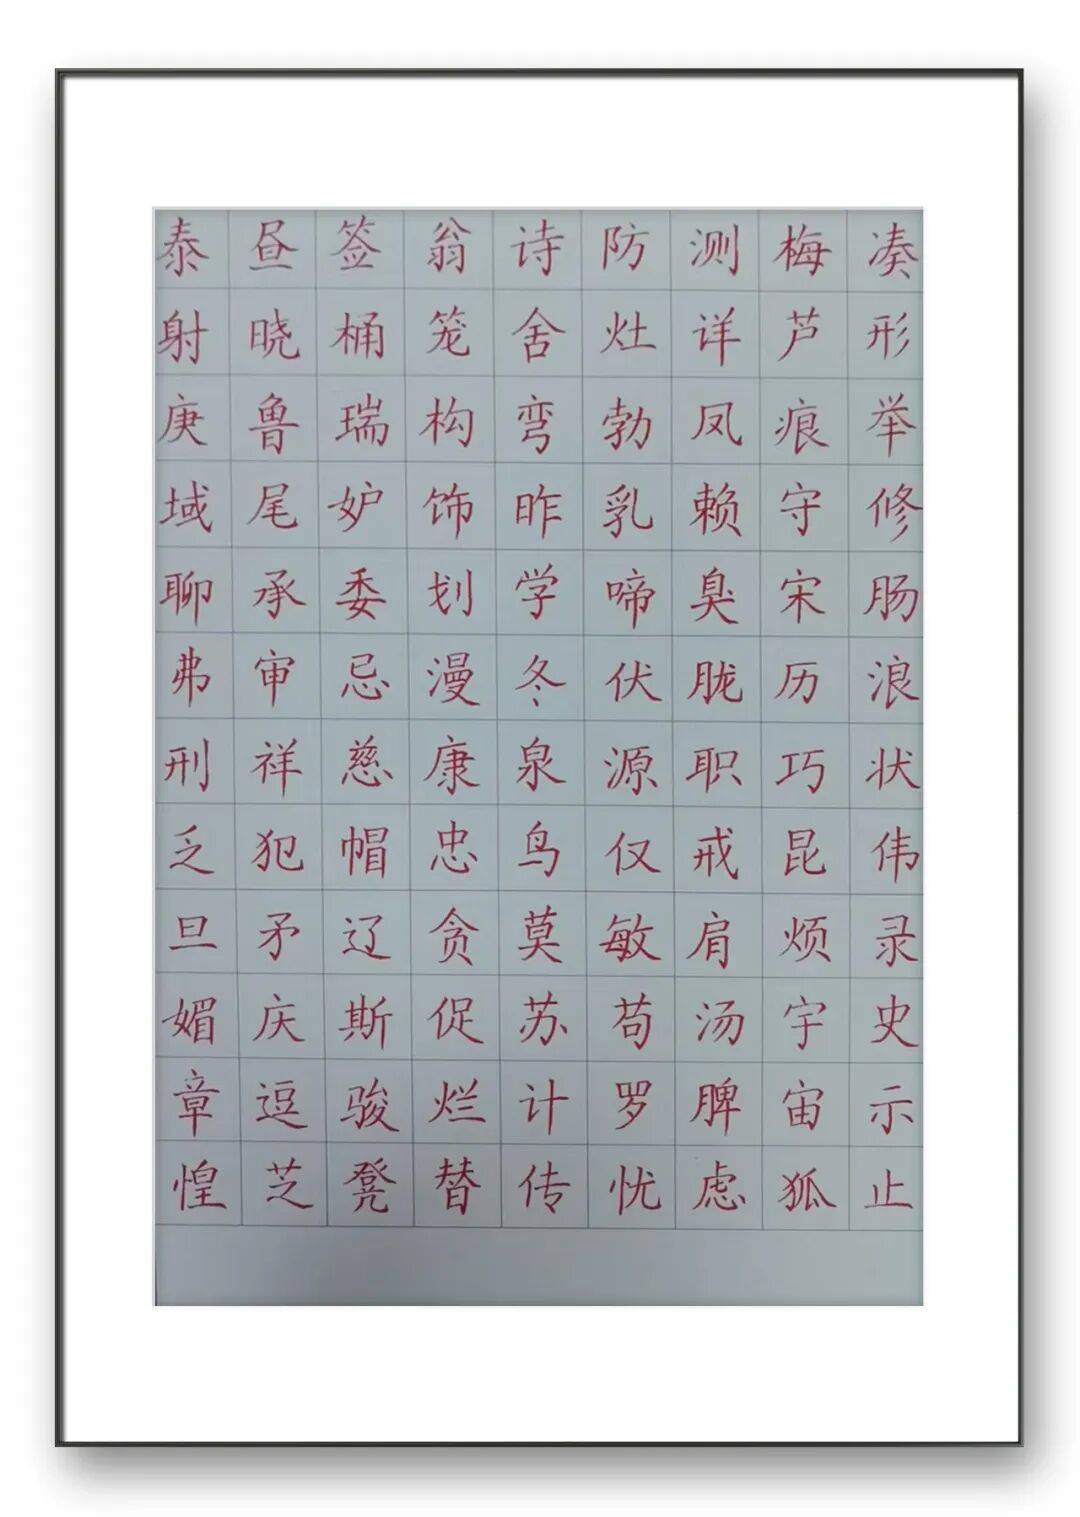 泰昼签翁诗防测梅凑
射晓桶笼舍灶详芦形
庚鲁瑞构弯勃凤痕举
域尾妒饰昨乳赖守修
聊承委划学啼臭宋肠
弗审忌漫冬伏胧历浪
刑祥慈康泉源职巧状
乏犯帽忠鸟仅戒昆伟
旦矛辽贪莫敏肩烦录
媚庆斯促苏苟汤宇史
章逗骏烂计罗脾宙示
惶芝凳替传忧虑狐止